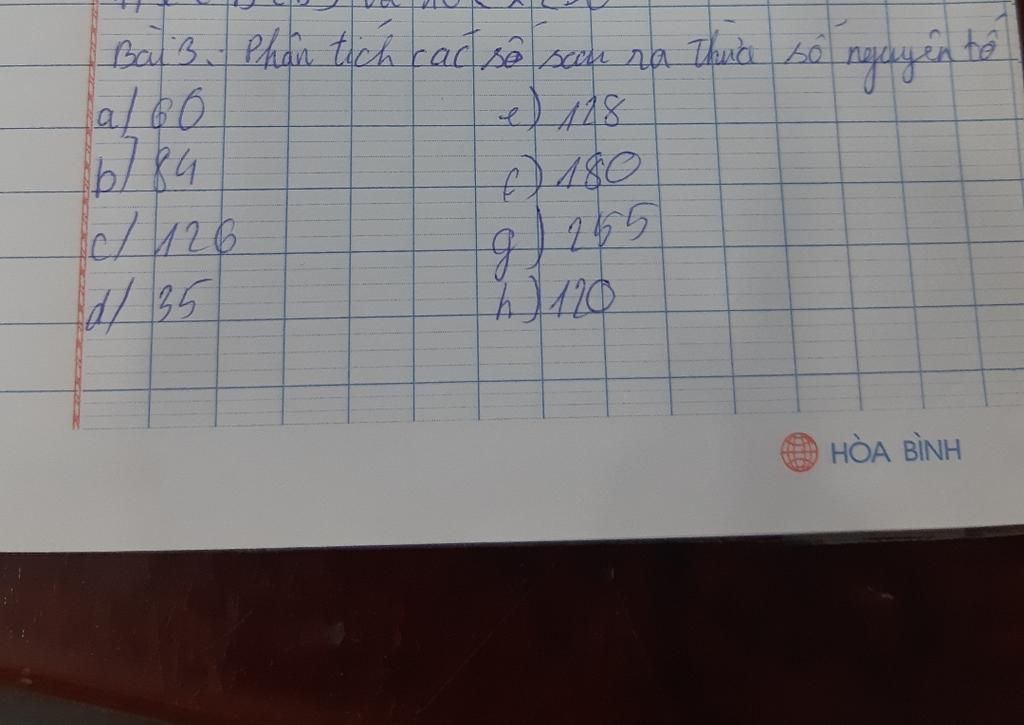 Bài 3: Phân tích các số sau ra thừa số nguyên tố
a/ 60 e) 128
b/ 84 f) 180
c/ 126 g) 255
d/ 35 h) 120
HÒA BÌNH